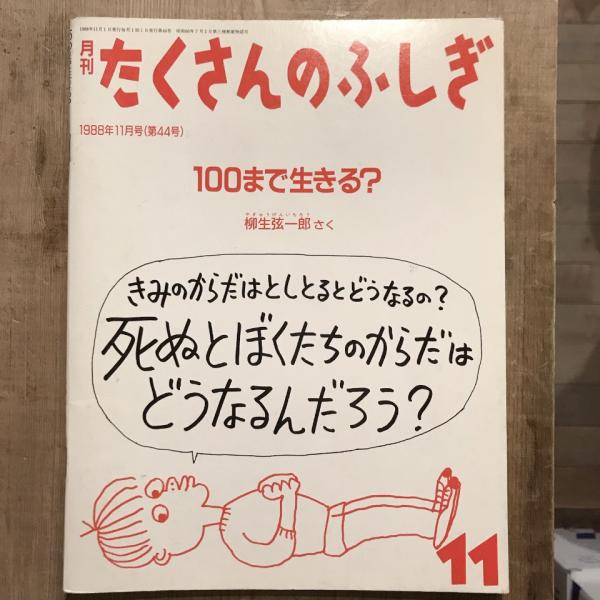 月刊
たくさんのふしぎ
1988年11月号(第44号)
100まで生きる?
やぎゅうげんいちろう
柳生弦一郎 さく
きみのからだはとしとるとどうなるの?
死ぬとぼくたちのからだは
どうなるんだろう?
11